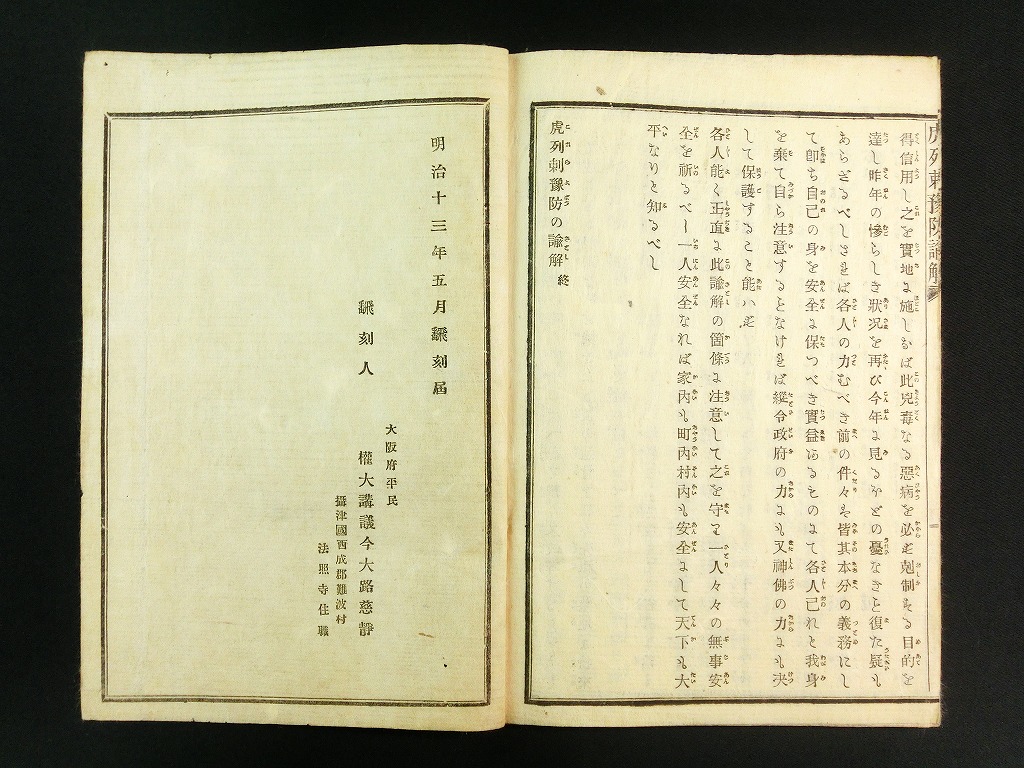 得信用し之を實地に施しなば此兇毒なる惡病を必ず剋制する目的を
達し昨年の慘らしき狀況を再び今年に見るなどの憂なきと復た疑も
あらざるべしされば各人の力むべき前の件々は皆其本分の義務にし
て卽ち自己の身を安全に保つべき實益あるものにて各人己れと我身
を棄て自ら注意することなければ縱令政府の力にも又神佛の力にも决
して保護すること能ハず
各人能く正直に此諭解の箇條に注意して之を守り一人々々の無事安
全を祈るべし一人安全なれば家内も町内村内も安全にして天下も大
平なりと知るべし
虎列剌豫防の諭解 終
明治十三年五月飜刻屆
飜刻人
大阪府平民
權大講議今大路慈靜
攝津國西成郡難波村
法照寺住職